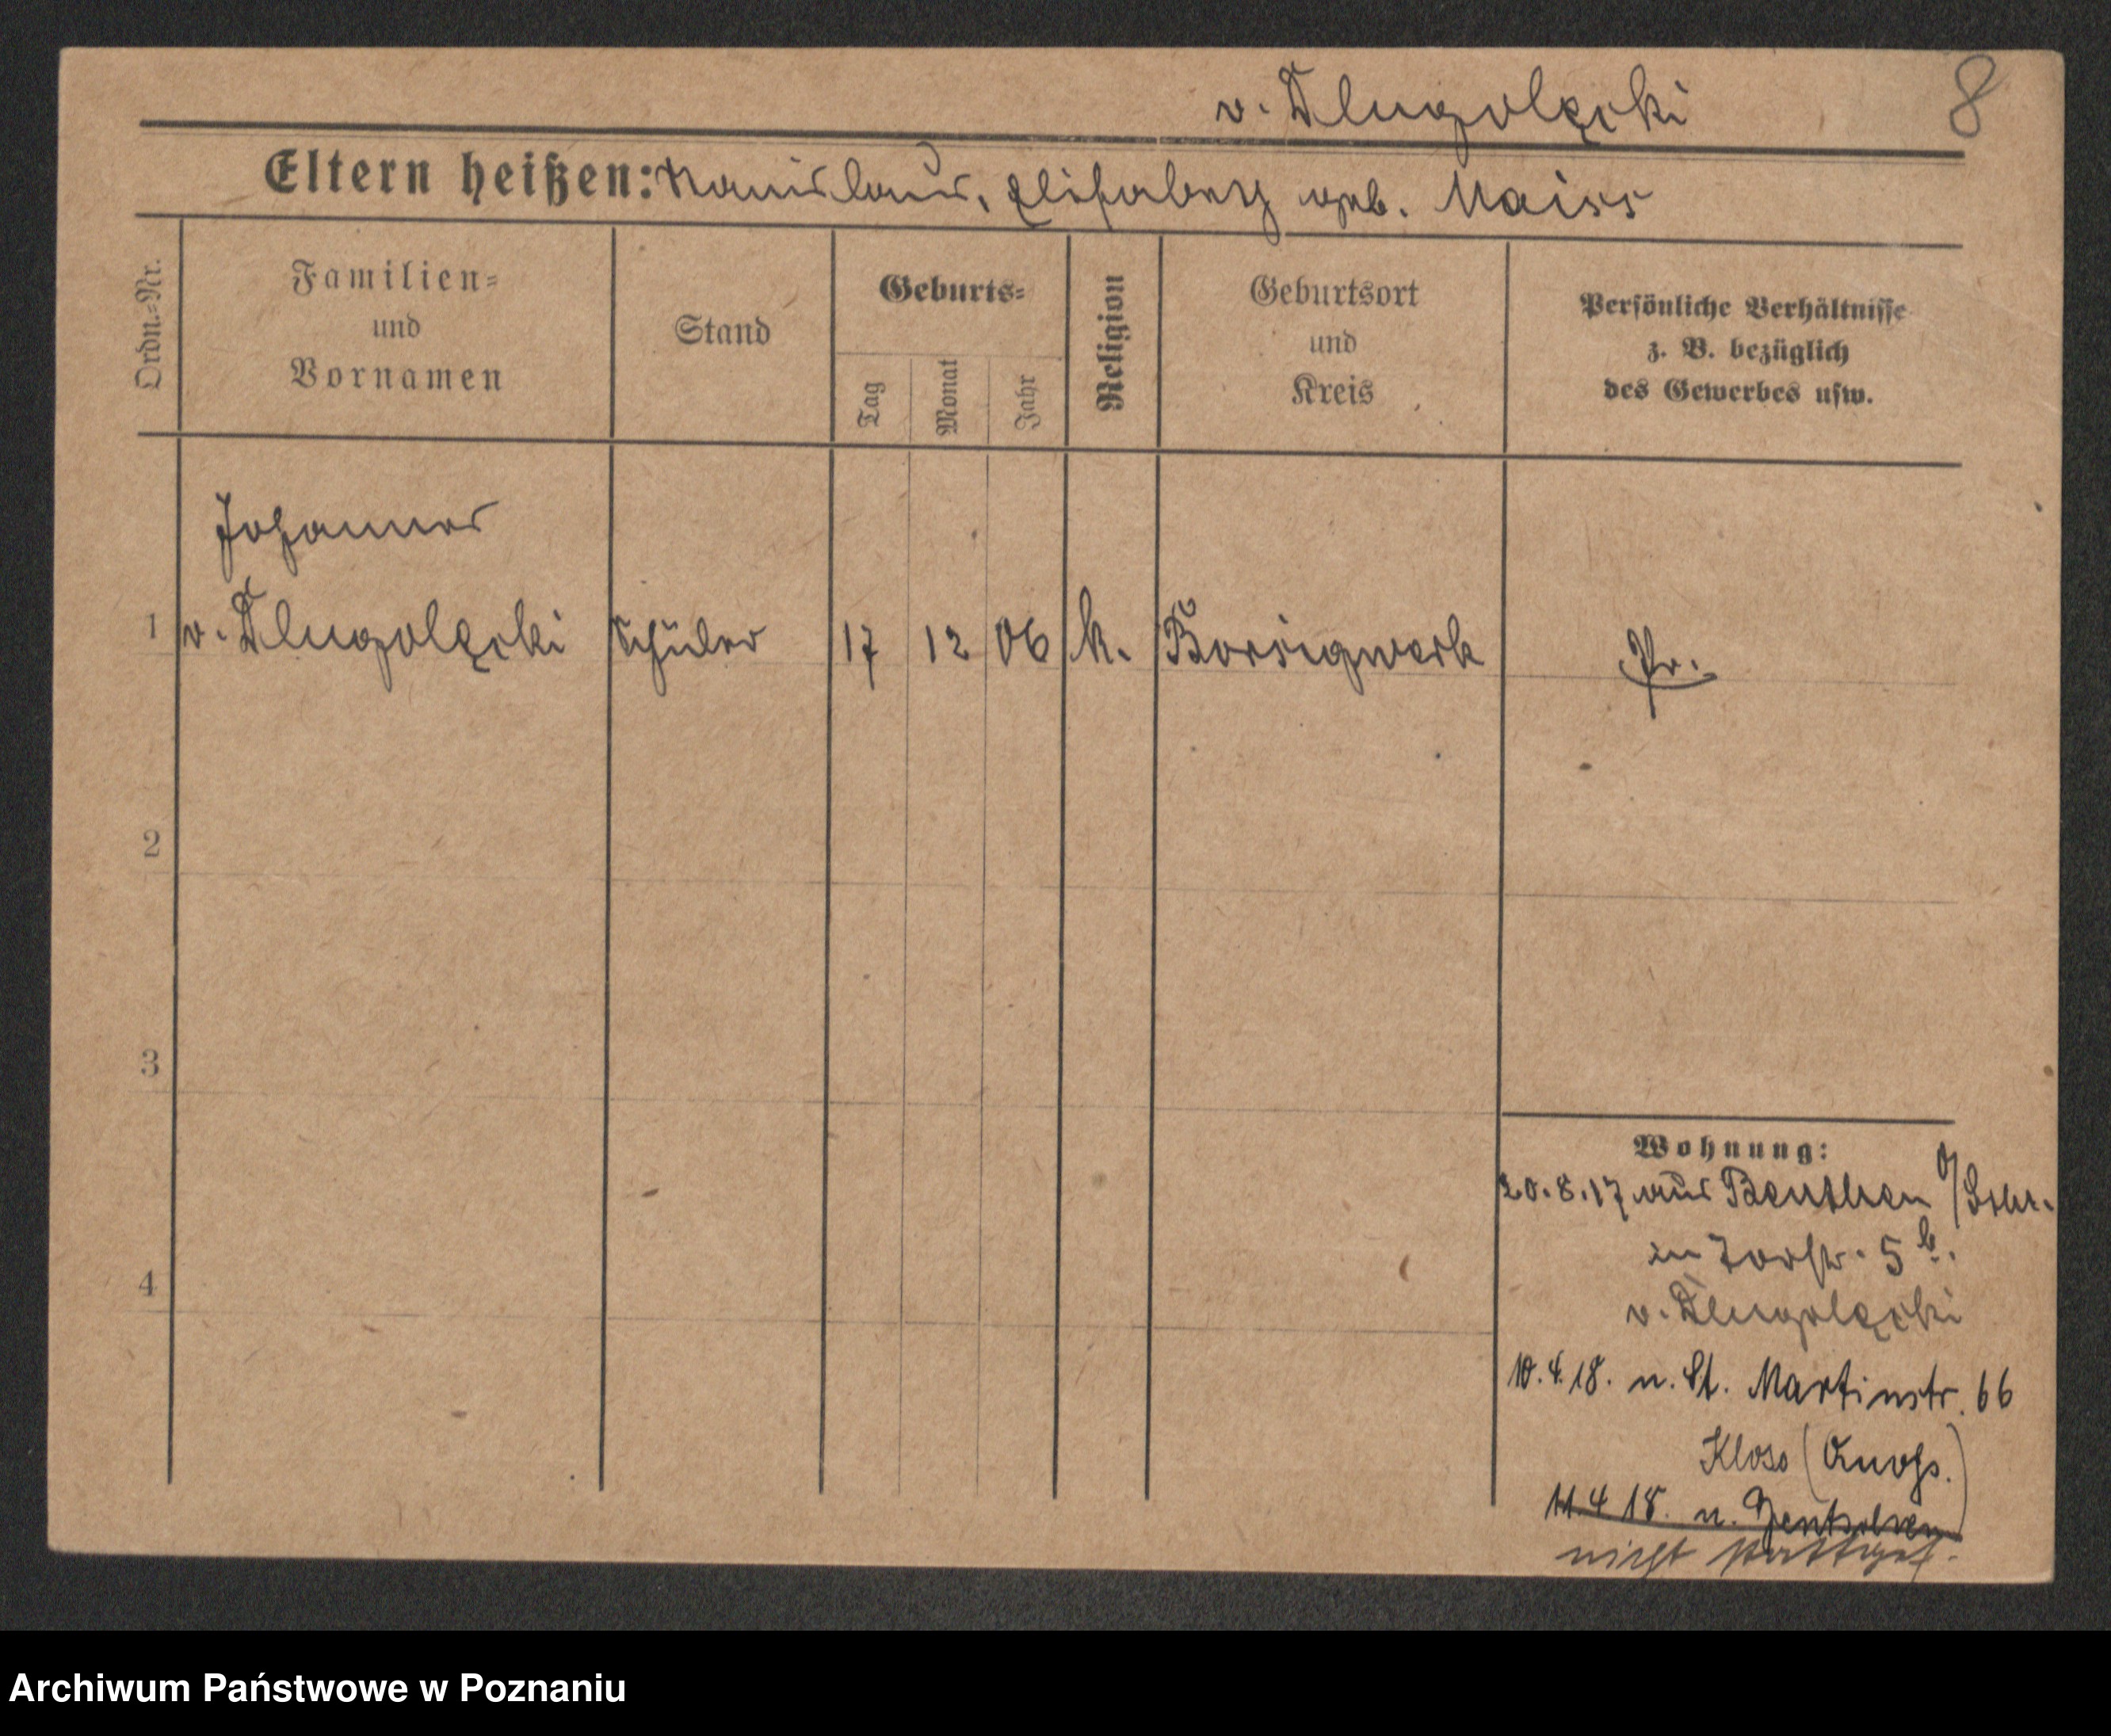 v. Dlugolęcki 8
Eltern heißen: Stanislaus, Elisabeth geb. Maiss
Ordn.-Nr.
Familien-
und
Vornamen
Stand
Geburts-
Tag
Monat
Jahr
Religion
Geburtsort
und
Kreis
Persönliche Verhältnisse
z. B. bezüglich
des Gewerbes usw.
Johannes
1 v. Dlugolęcki Schüler 17 12 06 k. Borsigwerk Pr.
2
3
4
Wohnung:
20.8.17 aus Beuthen O/Schl.
in 5 b.
v. Dlugolęcki
10.4.18. n. St. Martinstr. 66
Klose
11.4 18. n. Gentschen
nicht
Archiwum Państwowe w Poznaniu